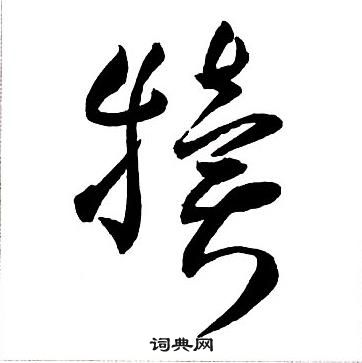 犊
词典网